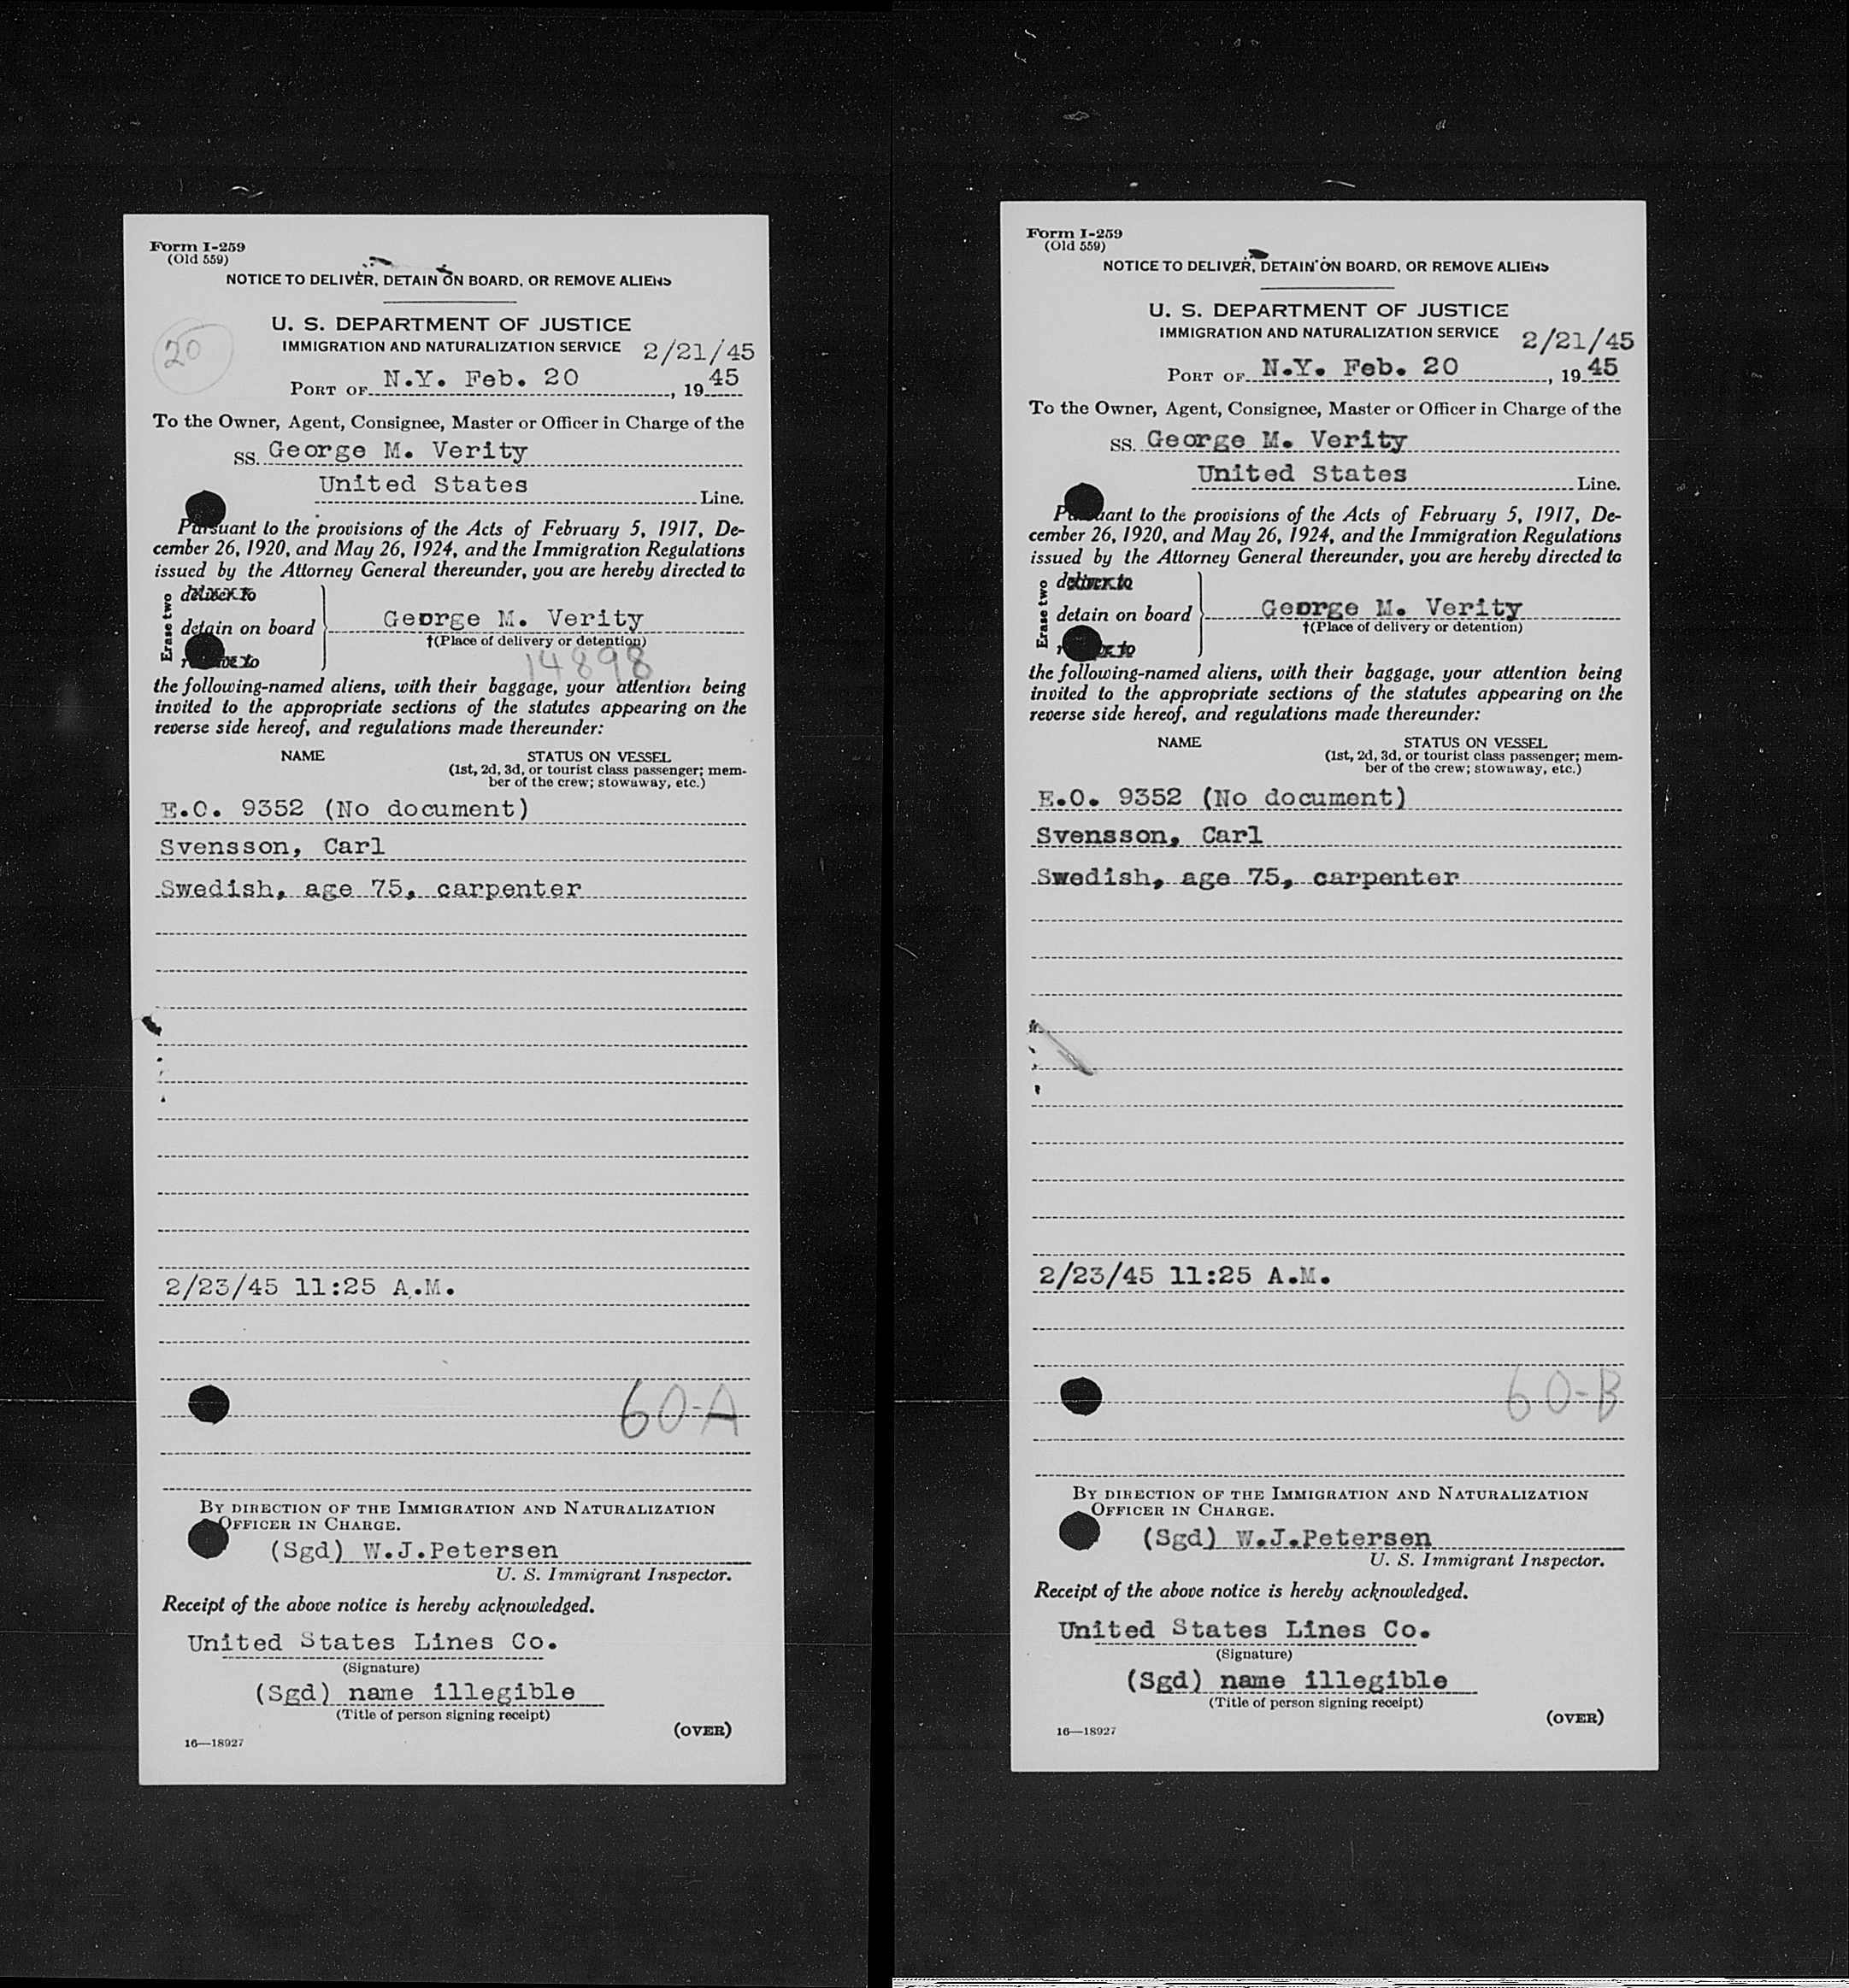 Form I-259
(Old 559)
NOTICE TO DELIVER, DETAIN ON BOARD, OR REMOVE ALIENS
20
U. S. DEPARTMENT OF JUSTICE
IMMIGRATION AND NATURALIZATION SERVICE 2/21/45
PORT OF N.Y. Feb. 20, 1945
To the Owner, Agent, Consignee, Master or Officer in Charge of the
SS. George M. Verity
United States Line.
Pursuant to the provisions of the Acts of February 5, 1917, De-
cember 26, 1920, and May 26, 1924, and the Immigration Regulations
issued by the Attorney General thereunder, you are hereby directed to
Erase two
deliver to
detain on board George M. Verity
†(Place of delivery or detention)
to
14898
the following-named aliens, with their baggage, your attention being
invited to the appropriate sections of the statutes appearing on the
reverse side hereof, and regulations made thereunder:
NAME STATUS ON VESSEL
(1st, 2d, 3d, or tourist class passenger; mem-
ber of the crew; stowaway, etc.)
E.O. 9352 (No document)
Svensson, Carl
Swedish, age 75, carpenter
2/23/45 11:25 A.M.
60-A
BY DIRECTION OF THE IMMIGRATION AND NATURALIZATION
OFFICER IN CHARGE.
(Sgd) W.J.Petersen
U. S. Immigrant Inspector.
Receipt of the above notice is hereby acknowledged.
United States Lines Co.
(Signature)
(Sgd) name illegible
(Title of person signing receipt)
(OVER)
16—18927
Form I-259
(Old 559)
NOTICE TO DELIVER, DETAIN ON BOARD, OR REMOVE ALIENS
U. S. DEPARTMENT OF JUSTICE
IMMIGRATION AND NATURALIZATION SERVICE 2/21/45
PORT OF N.Y. Feb. 20, 1945
To the Owner, Agent, Consignee, Master or Officer in Charge of the
SS. George M. Verity
United States Line.
Pursuant to the provisions of the Acts of February 5, 1917, De-
cember 26, 1920, and May 26, 1924, and the Immigration Regulations
issued by the Attorney General thereunder, you are hereby directed to
Erase two
deliver to
detain on board George M. Verity
†(Place of delivery or detention)
to
the following-named aliens, with their baggage, your attention being
invited to the appropriate sections of the statutes appearing on the
reverse side hereof, and regulations made thereunder:
NAME STATUS ON VESSEL
(1st, 2d, 3d, or tourist class passenger; mem-
ber of the crew; stowaway, etc.)
E.O. 9352 (No document)
Svensson, Carl
Swedish, age 75, carpenter
2/23/45 11:25 A.M.
60-B
BY DIRECTION OF THE IMMIGRATION AND NATURALIZATION
OFFICER IN CHARGE.
(Sgd) W.J.Petersen
U. S. Immigrant Inspector.
Receipt of the above notice is hereby acknowledged.
United States Lines Co.
(Signature)
(Sgd) name illegible
(Title of person signing receipt)
(OVER)
16—18927